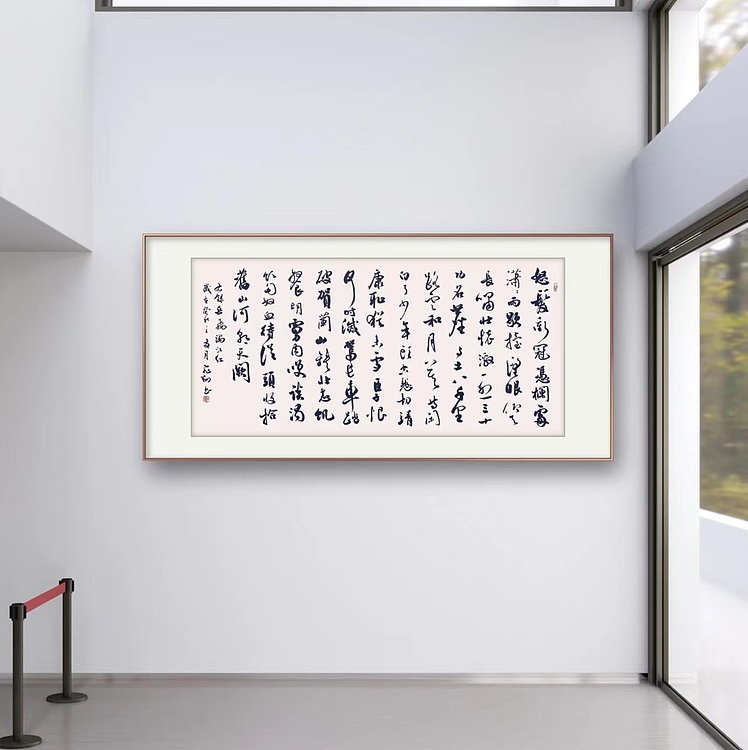 怒髮衝冠憑欄處
瀟々雨歇抬望眼仰天
長嘯壯懷激烈三十
功名塵與土八千里
路雲和月莫等閒
白了少年頭空悲切靖
康恥猶未雪臣子恨
何時滅駕長車踏
破賀蘭山缺壯志飢
餐胡虜肉笑談渴
飲匈奴血待從頭收拾
舊山河朝天闕
右錄岳飛滿江红
歲在癸卯之春月書